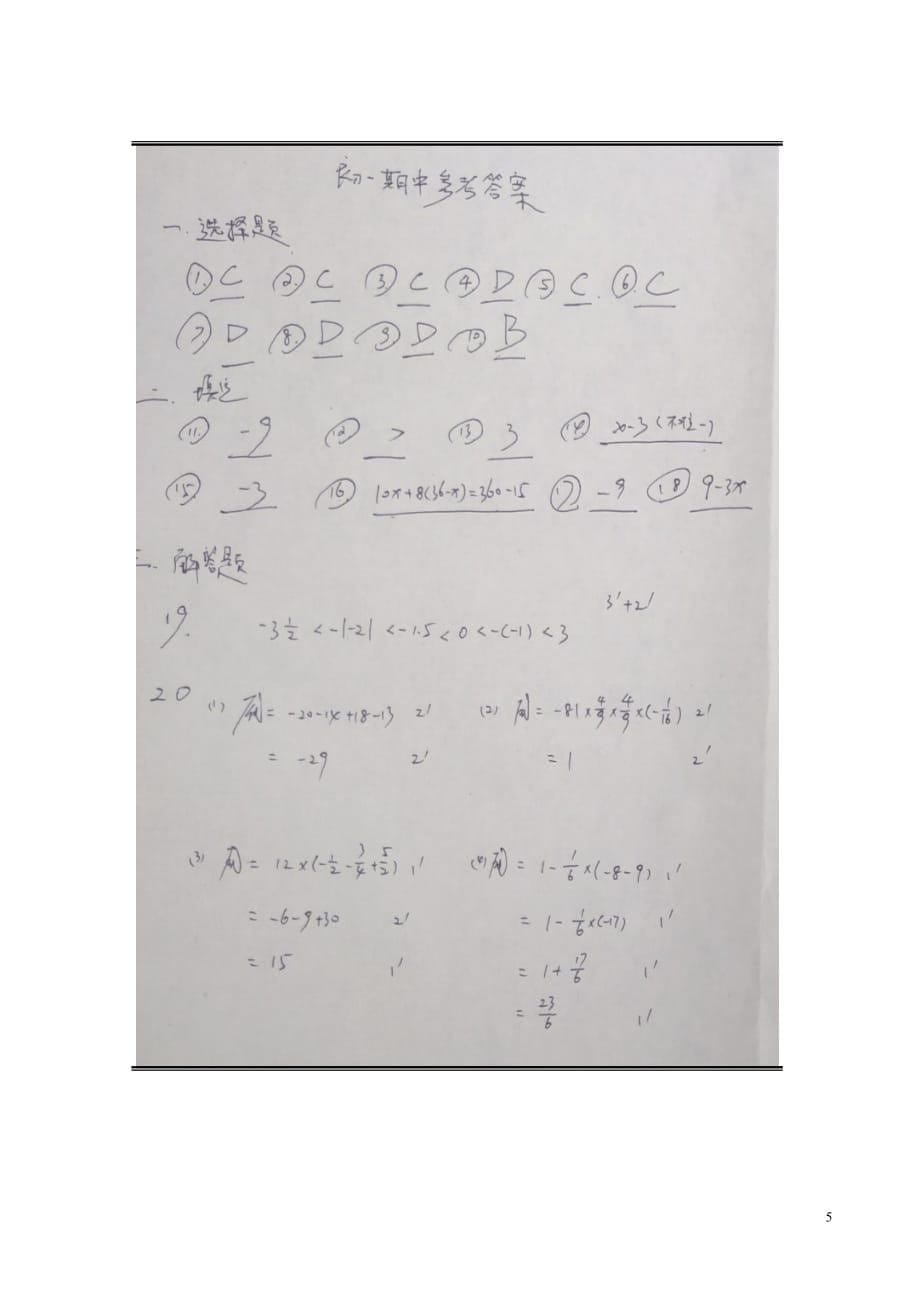 初一期中参考答案
一.选择题
①.C ②.C ③C ④D ⑤C. ⑥.C
⑦D ⑧.D ⑨D ⑩.B
二.填空
⑪ -9 ⑫ > ⑬ 3 ⑭ x-3(不唯一)
⑮ -3 ⑯ 10x+8(36-x)=360-15 ⑰ -9 ⑱ 9-3x
三.解答题
3'+2'
19. -3 1/2 <-|-2| <-1.5<0<-(-1)<3
20 (1) 原= -20-14+18-13 2' (2) 原= -81×4/9×4/9×(-1/16) 2'
= -29 2' =1 2'
(3) 原= 12×(-1/2-3/4+5/2) 1' (4) 原= 1-1/6×(-8-9) 1'
= -6-9+30 2' = 1-1/6×(-17) 1'
= 15 1' = 1+17/6 1'
= 23/6 1'
5